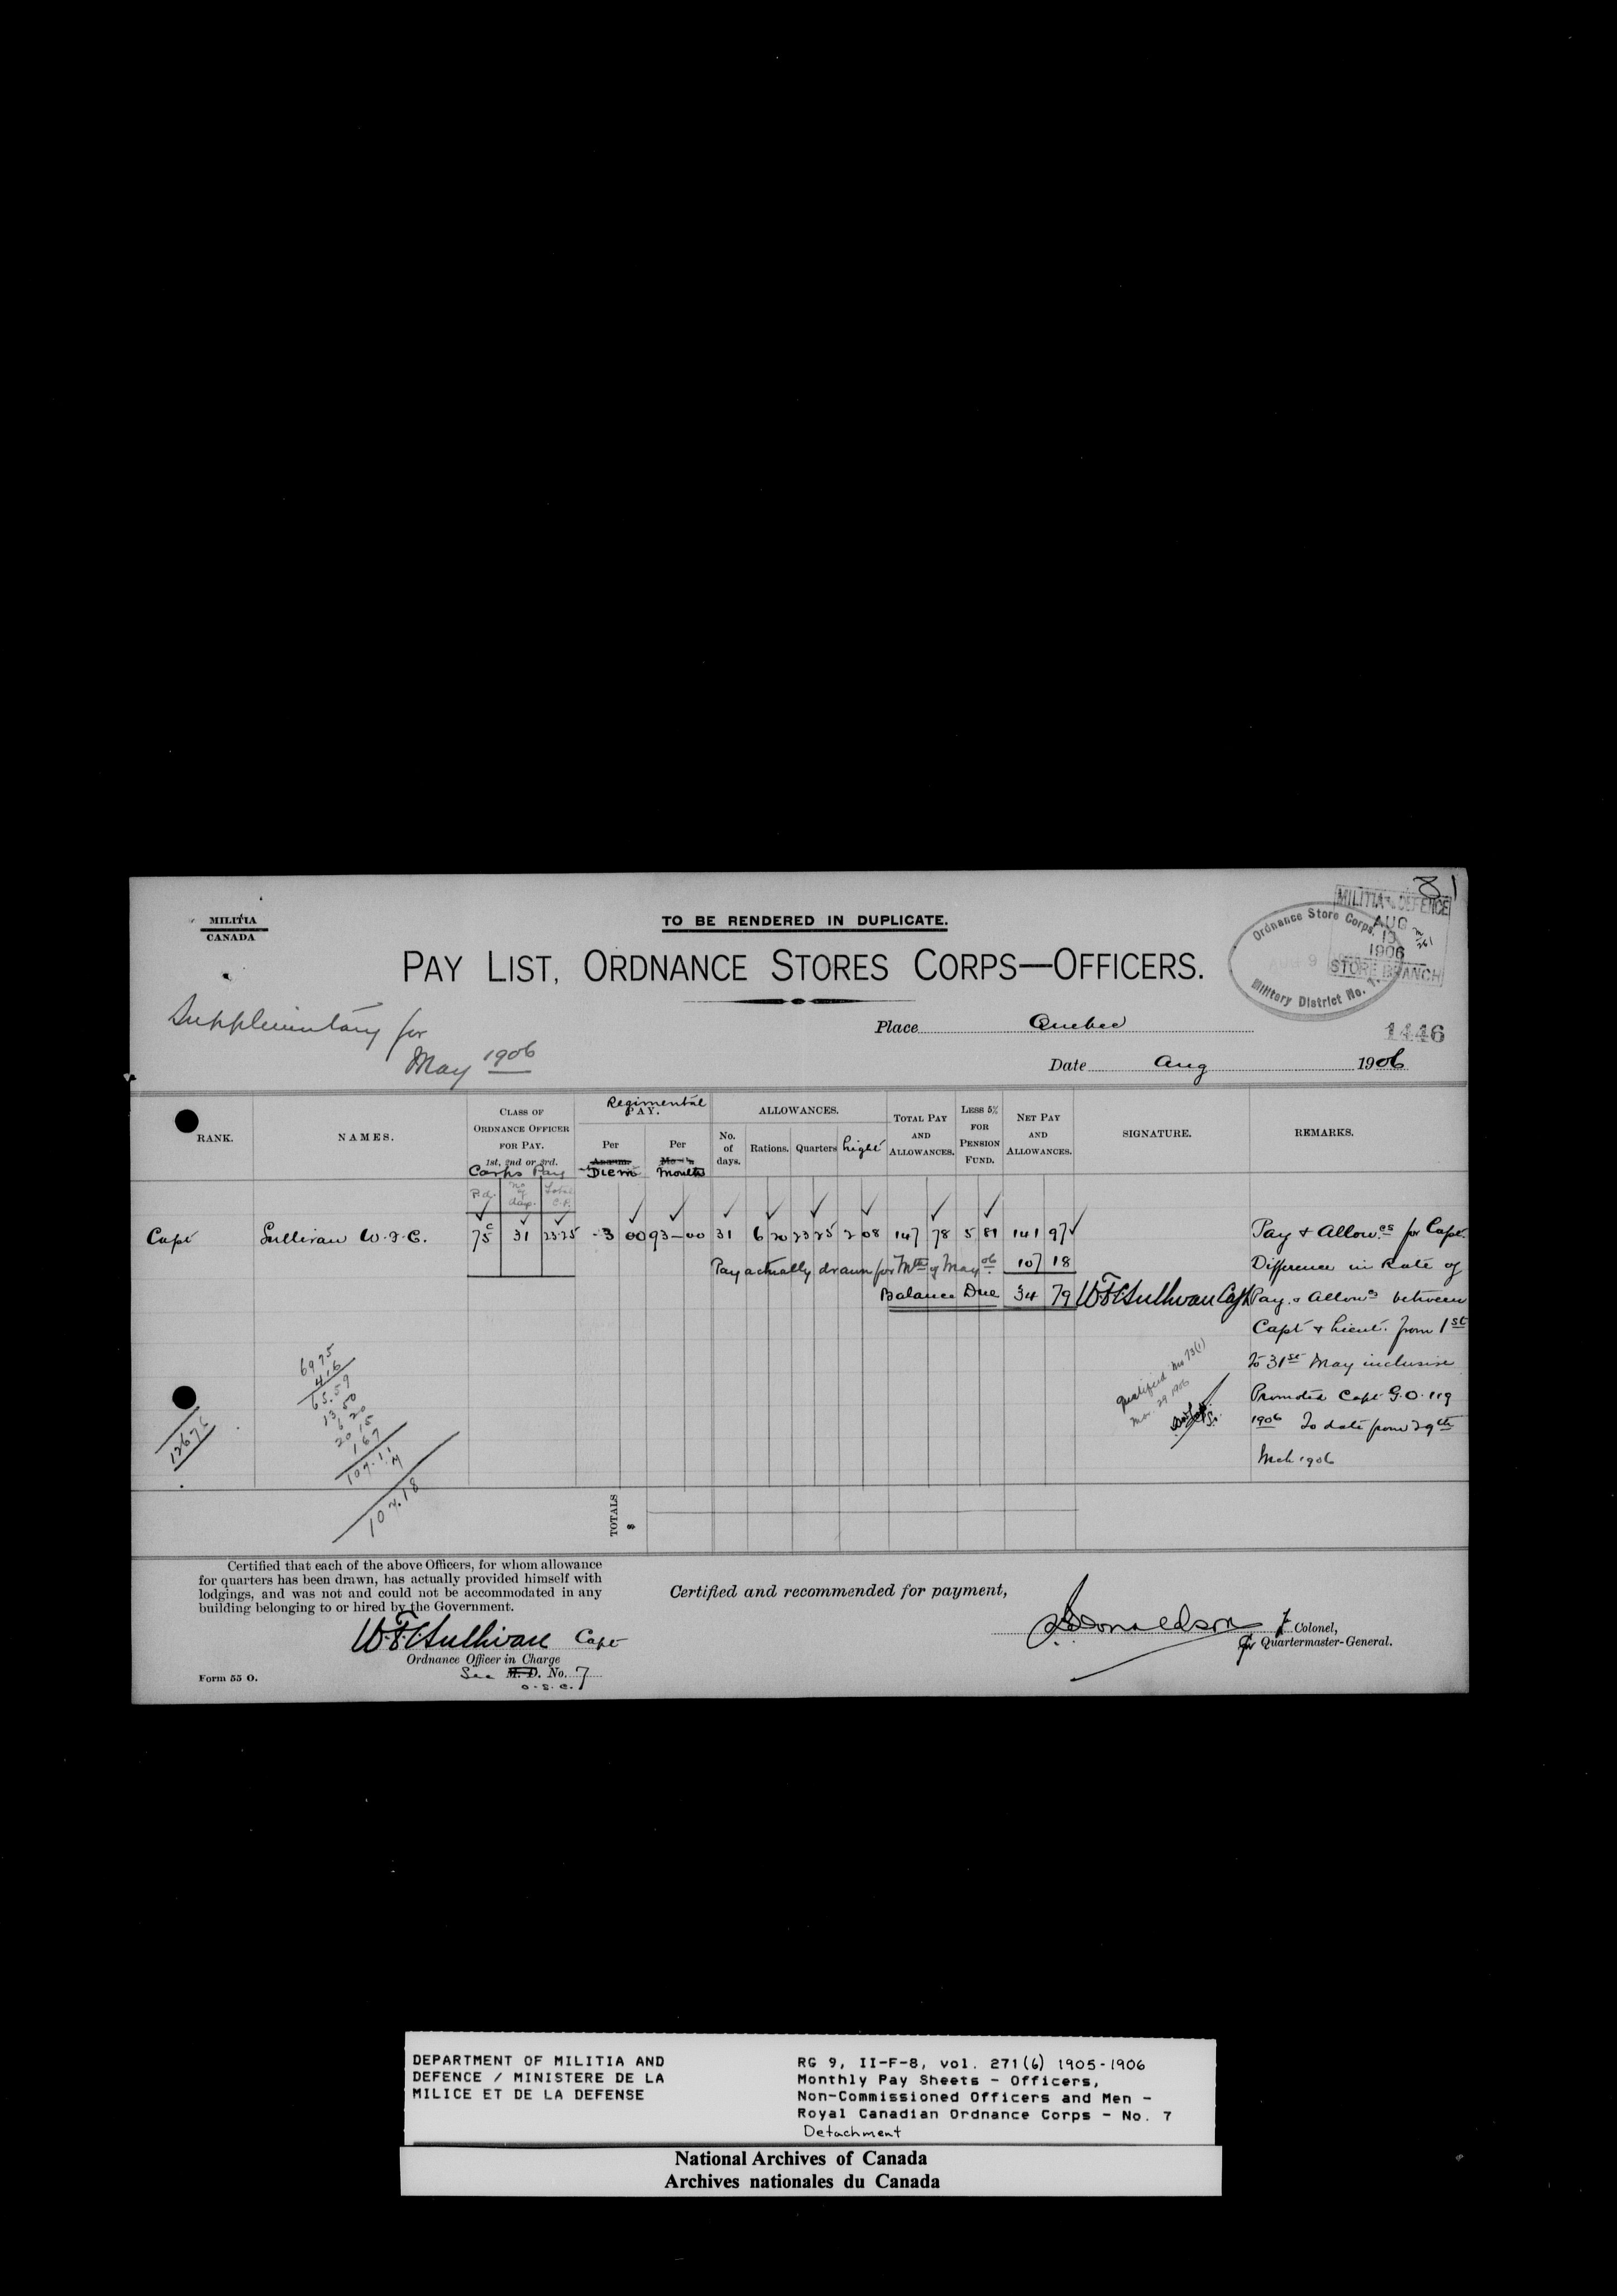 81
MILITIA
CANADA
TO BE RENDERED IN DUPLICATE.
PAY LIST, ORDNANCE STORES CORPS—OFFICERS.
Ordnance Store Corps,
AUG 9
Military District No. 7.
MILITIA & DEFENCE
AUG
13
1906
STORE BRANCH
Supplimentary for
May 1906
Place Quebec
1446
Date Aug 1906
RANK.
NAMES.
CLASS OF
ORDNANCE OFFICER
FOR PAY.
1st, 2nd or 3rd.
Corps Pay
P.d. No of days. Total C.P.
Regimental
PAY.
Per
Annum
Diem
Per
Month
Month
ALLOWANCES.
No.
of
days.
Rations.
Quarters
Light
TOTAL PAY
AND
ALLOWANCES.
LESS 5%
FOR
PENSION
FUND.
NET PAY
AND
ALLOWANCES.
SIGNATURE.
REMARKS.
Capt Sullivan W.F.C. 75c 31 23.25 3 00 93-00 31 6 20 23 25 2 08 147 78 5 81 141 97
Pay actually drawn for Mth of May 06 107 18
Balance Due 34 79 W.F.C. Sullivan Capt
Pay & Allowces for Capt.
Difference in Rate of
Pay & Allowcs between
Capt & Lieut. from 1st
to 31st May inclusive
Promoted Capt G.O. 119
1906 To date from 29th
Mch 1906
Qualified
Mar. 29 1906
69.75
4.16
65.59
13.50
6.20
20.15
1.67
107.11
107.18
126.76
TOTALS
$
Certified that each of the above Officers, for whom allowance
for quarters has been drawn, has actually provided himself with
lodgings, and was not and could not be accommodated in any
building belonging to or hired by the Government.
W.F.C. Sullivan Capt
Ordnance Officer in Charge
Sec M. D. No. 7
O.S.C.
Form 55 O.
Certified and recommended for payment,
Donaldson Lt Colonel,
for Quartermaster-General.
DEPARTMENT OF MILITIA AND
DEFENCE / MINISTERE DE LA
MILICE ET DE LA DEFENSE
RG 9, II-F-8, vol. 271(6) 1905-1906
Monthly Pay Sheets - Officers,
Non-Commissioned Officers and Men -
Royal Canadian Ordnance Corps - No. 7
Detachment
National Archives of Canada
Archives nationales du Canada